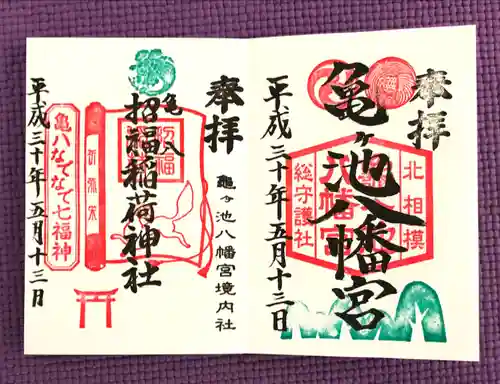 奉拝
亀ヶ池八幡宮
北相模
総守護社
八幡宮
平成三十年五月十三日
奉拝
亀ヶ池八幡宮境内社
亀八
招福稲荷神社
招福
亀八なでなで七福神
平成三十年五月十三日